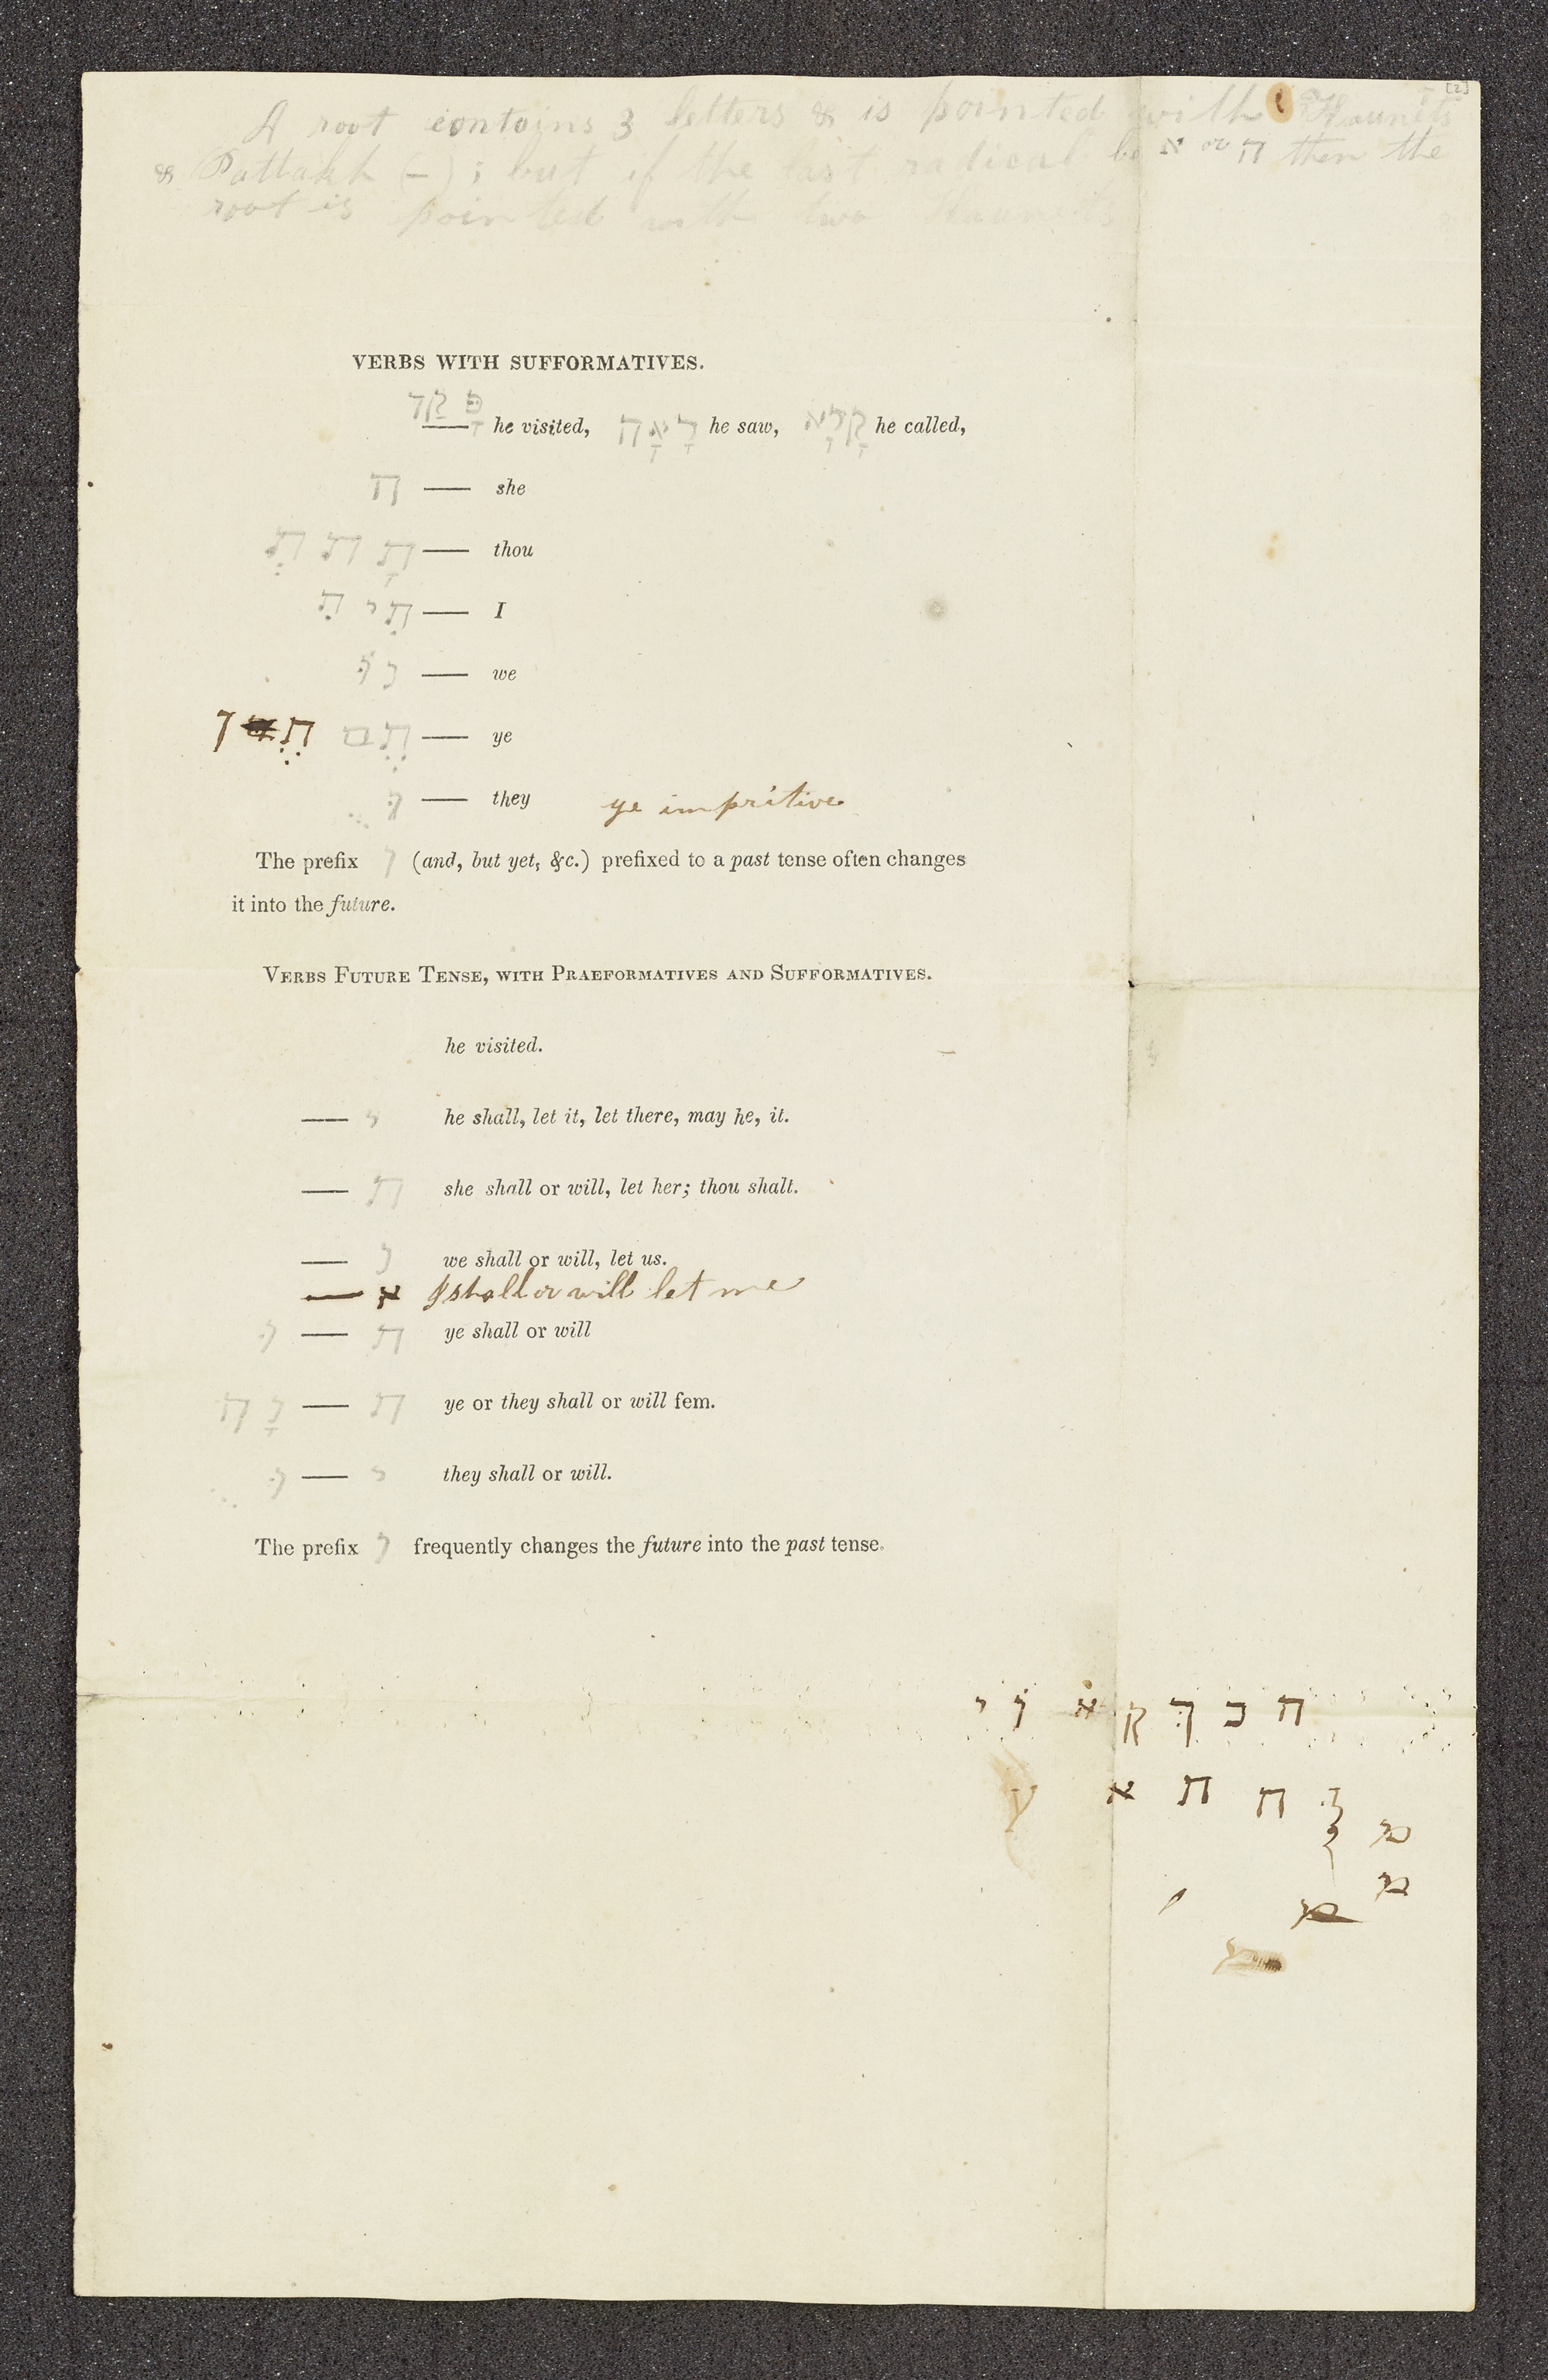 [2]
A root contains 3 letters & is pointed with Kaunets
& Pattakh (-); but if the last radical be א or ה then the
root is pointed with two Kaunets
VERBS WITH SUFFORMATIVES.
פָּקַד he visited, רָאָה he saw, קָרָא he called,
ה — she
תָ תְ תִּ — thou
תִּי תִּ — I
נוּ — we
תֶם תֶן — ye
וּ — they ye impritive
The prefix ו (and, but yet, &c.) prefixed to a past tense often changes
it into the future.
VERBS FUTURE TENSE, WITH PRAEFORMATIVES AND SUFFORMATIVES.
he visited.
— י he shall, let it, let there, may he, it.
— ת she shall or will, let her; thou shalt.
— נ we shall or will, let us.
— א I shall or will let me
וּ — ת ye shall or will
נָה — ת ye or they shall or will fem.
וּ — י they shall or will.
The prefix ו frequently changes the future into the past tense.
ה כ ך ק א וֹ י
ה ת א ע
מ
מ
מ